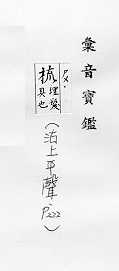 彙音寶鑑
ㄕㄨ·
梳 理髮具也
(沽上平聲·P222)